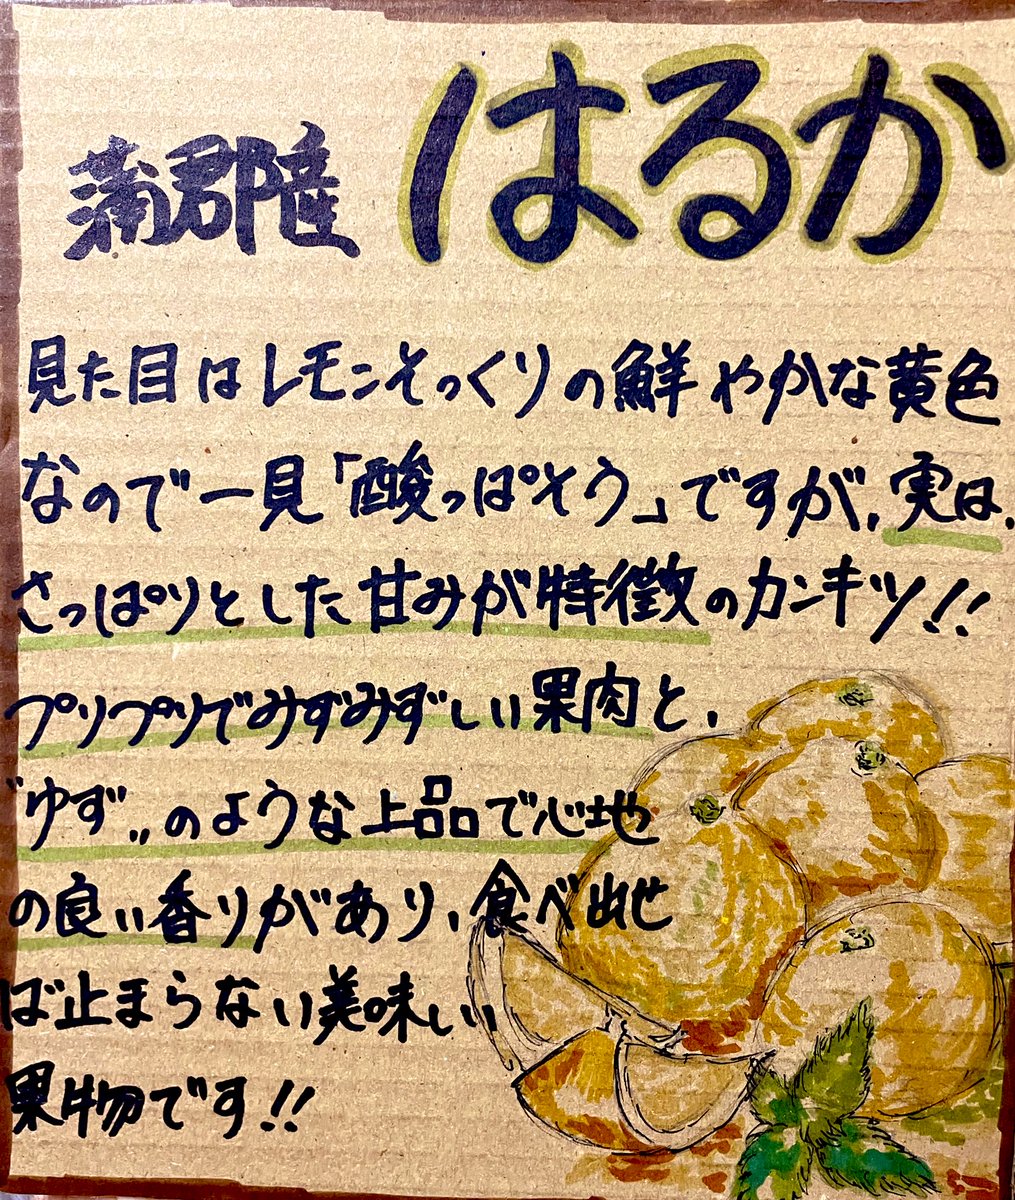 蒲郡産 はるか
見た目はレモンそっくりの鮮やかな黄色
なので一見「酸っぱそう」ですが、実は、
さっぱりとした甘みが特徴のカンキツ!!
プリプリでみずみずしい果肉と、
〝ゆず〟のような上品で心地
の良い香りがあり、食べ出せ
ば止まらない美味しい
果物です!!